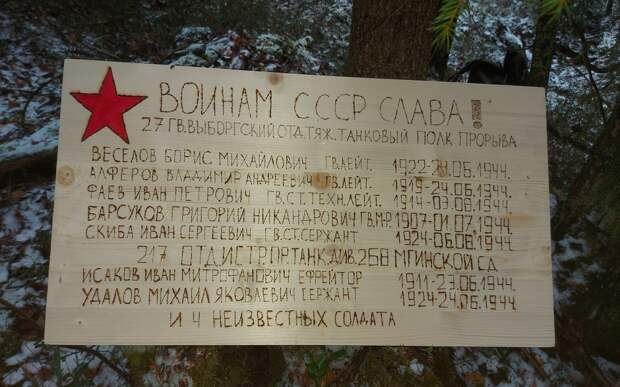 ВОИНАМ СССР СЛАВА!
27 ГВ.ВЫБОРГСКИЙ ОТД.ТЯЖ.ТАНКОВЫЙ ПОЛК ПРОРЫВА
ВЕСЕЛОВ БОРИС МИХАЙЛОВИЧ ГВ.ЛЕЙТ. 1922- .06.1944.
АЛФЕРОВ ВЛАДИМИР АНДРЕЕВИЧ ГВ.ЛЕЙТ. 1919-24.06.1944.
ФАЕВ ИВАН ПЕТРОВИЧ ГВ.СТ.ТЕХН.ЛЕЙТ. 1914-03.08.1944.
БАРСУКОВ ГРИГОРИЙ НИКАНДРОВИЧ ГВ.М-Р. 1907-01.07.1944.
СКИБА ИВАН СЕРГЕЕВИЧ ГВ.СТ.СЕРЖАНТ 1924-06.06.1944.
217 ОТД.ИСТР.ПР.ТАНК.ДИВ. 268 МГИНСКОЙ СД
ИСАКОВ ИВАН МИТРОФАНОВИЧ ЕФРЕЙТОР 1911-23.06.1944.
УДАЛОВ МИХАИЛ ЯКОВЛЕВИЧ СЕРЖАНТ 1924-24.06.1944.
И 4 НЕИЗВЕСТНЫХ СОЛДАТА